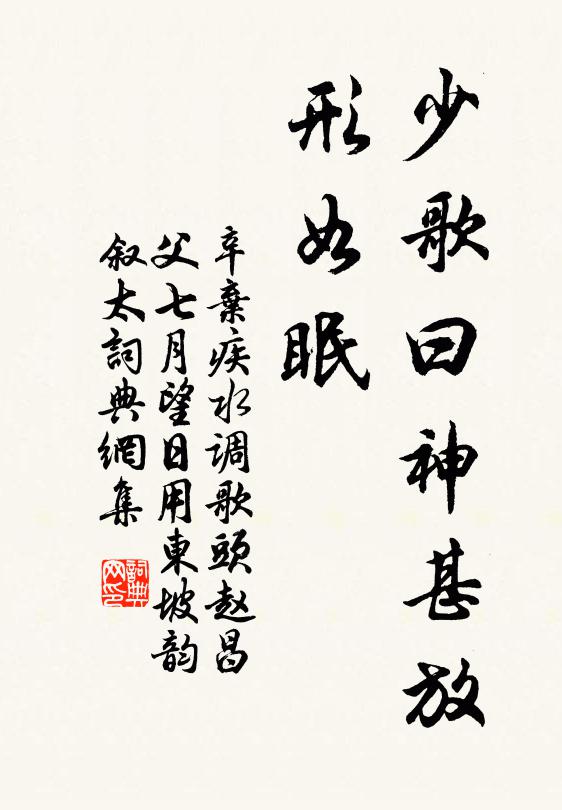 少歌曰神甚放
形如眠
辛棄疾水调歌頭赵昌
父七月望日用東坡韵
叙太詞典網集
詞典网印